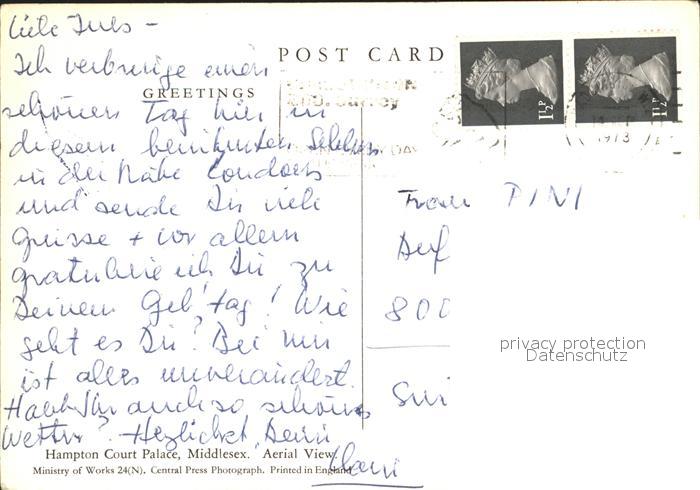 Liebe Ines –
Ich verbringe einen
POST CARD
GREETINGS
schönen Tag hier in
diesem berühmten Schloss
in der Nähe Londons
und sende Dir viele
Grüsse + vor allem
gratuliere ich Dir zu
Deinem Geb'tag! Wie
geht es Dir? Bei mir
ist alles unverändert.
Habt Ihr auch so schönes
Wetter? Herzlichst Deine
Hampton Court Palace, Middlesex. Aerial View.
Ministry of Works 24(N). Central Press Photograph. Printed in England
1½P
1½P
1973
Surrey
Frau PINI
Duf
800
privacy protection
Datenschutz